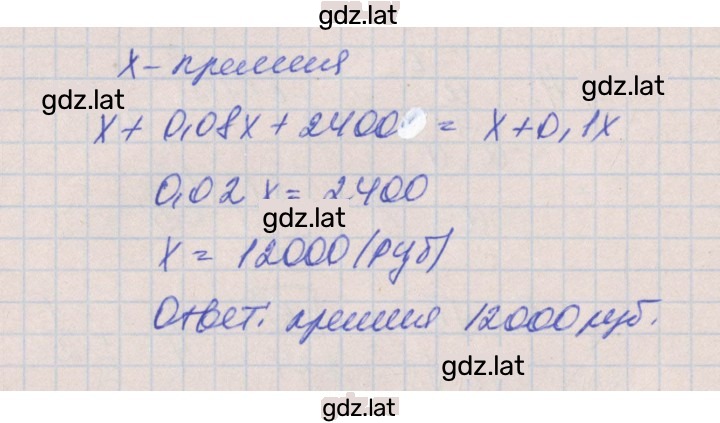 gdz.lat
x - премия
gdz.lat
gdz.lat
x + 0,08x + 2400 = x + 0,1x
0,02 x = 2400
gdz.lat
x = 12000 (руб)
Ответ: премия 12000 руб.
gdz.lat
gdz.lat